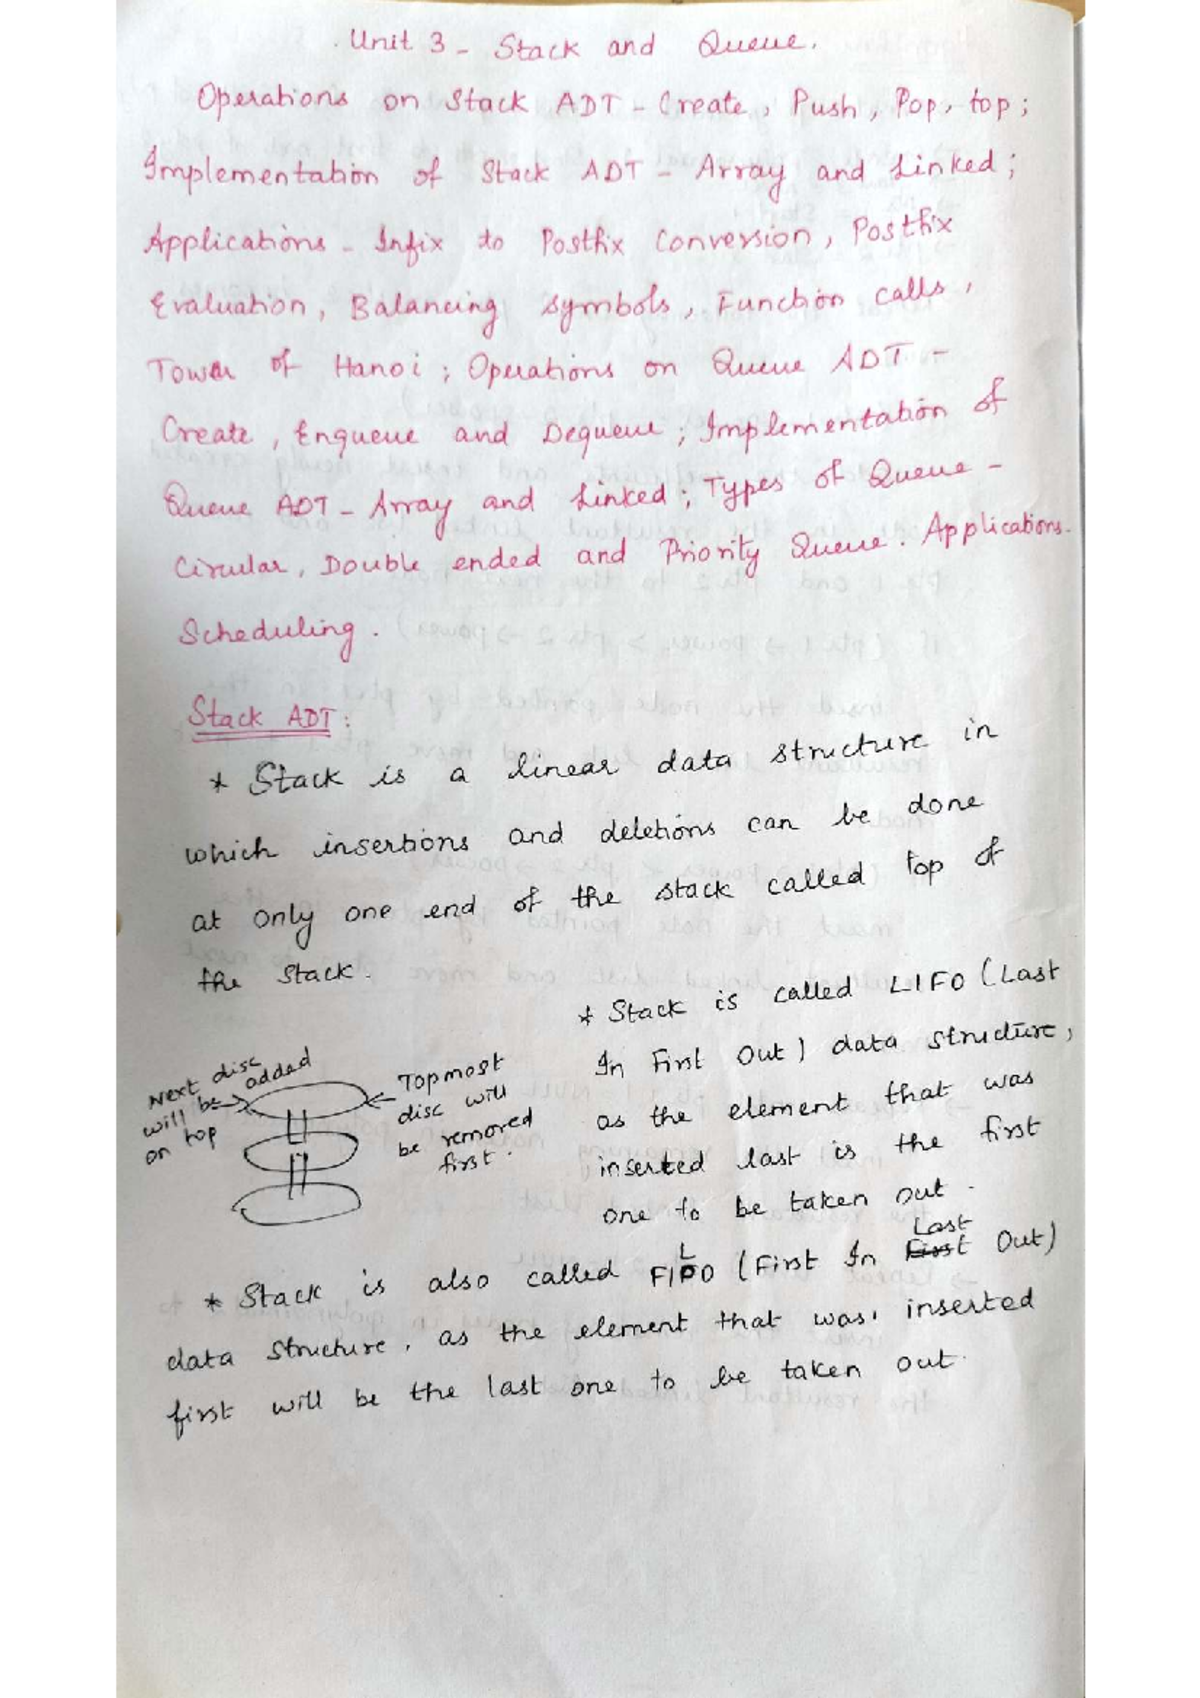 Unit 3 - Stack and Queue.
Operations on Stack ADT - Create, Push, Pop, top;
Implementation of Stack ADT - Array and Linked;
Applications - Infix to Postfix Conversion, Postfix
Evaluation, Balancing symbols, Function calls,
Tower of Hanoi; Operations on Queue ADT -
Create, Enqueue and Dequeue; Implementation of
Queue ADT - Array and Linked; Types of Queue -
Circular, Double ended and Priority Queue. Applications.
Scheduling.
Stack ADT:
* Stack is a linear data structure in
which insertions and deletions can be done
at only one end of the stack called top of
the stack.
* Stack is called LIFO (Last
In First Out) data structure,
as the element that was
inserted last is the first
one to be taken out.
Next disc
will be added
on top
Topmost
disc will
be removed
first.
* Stack is also called FILO (First In Last Out)
data structure, as the element that was inserted
first will be the last one to be taken out.